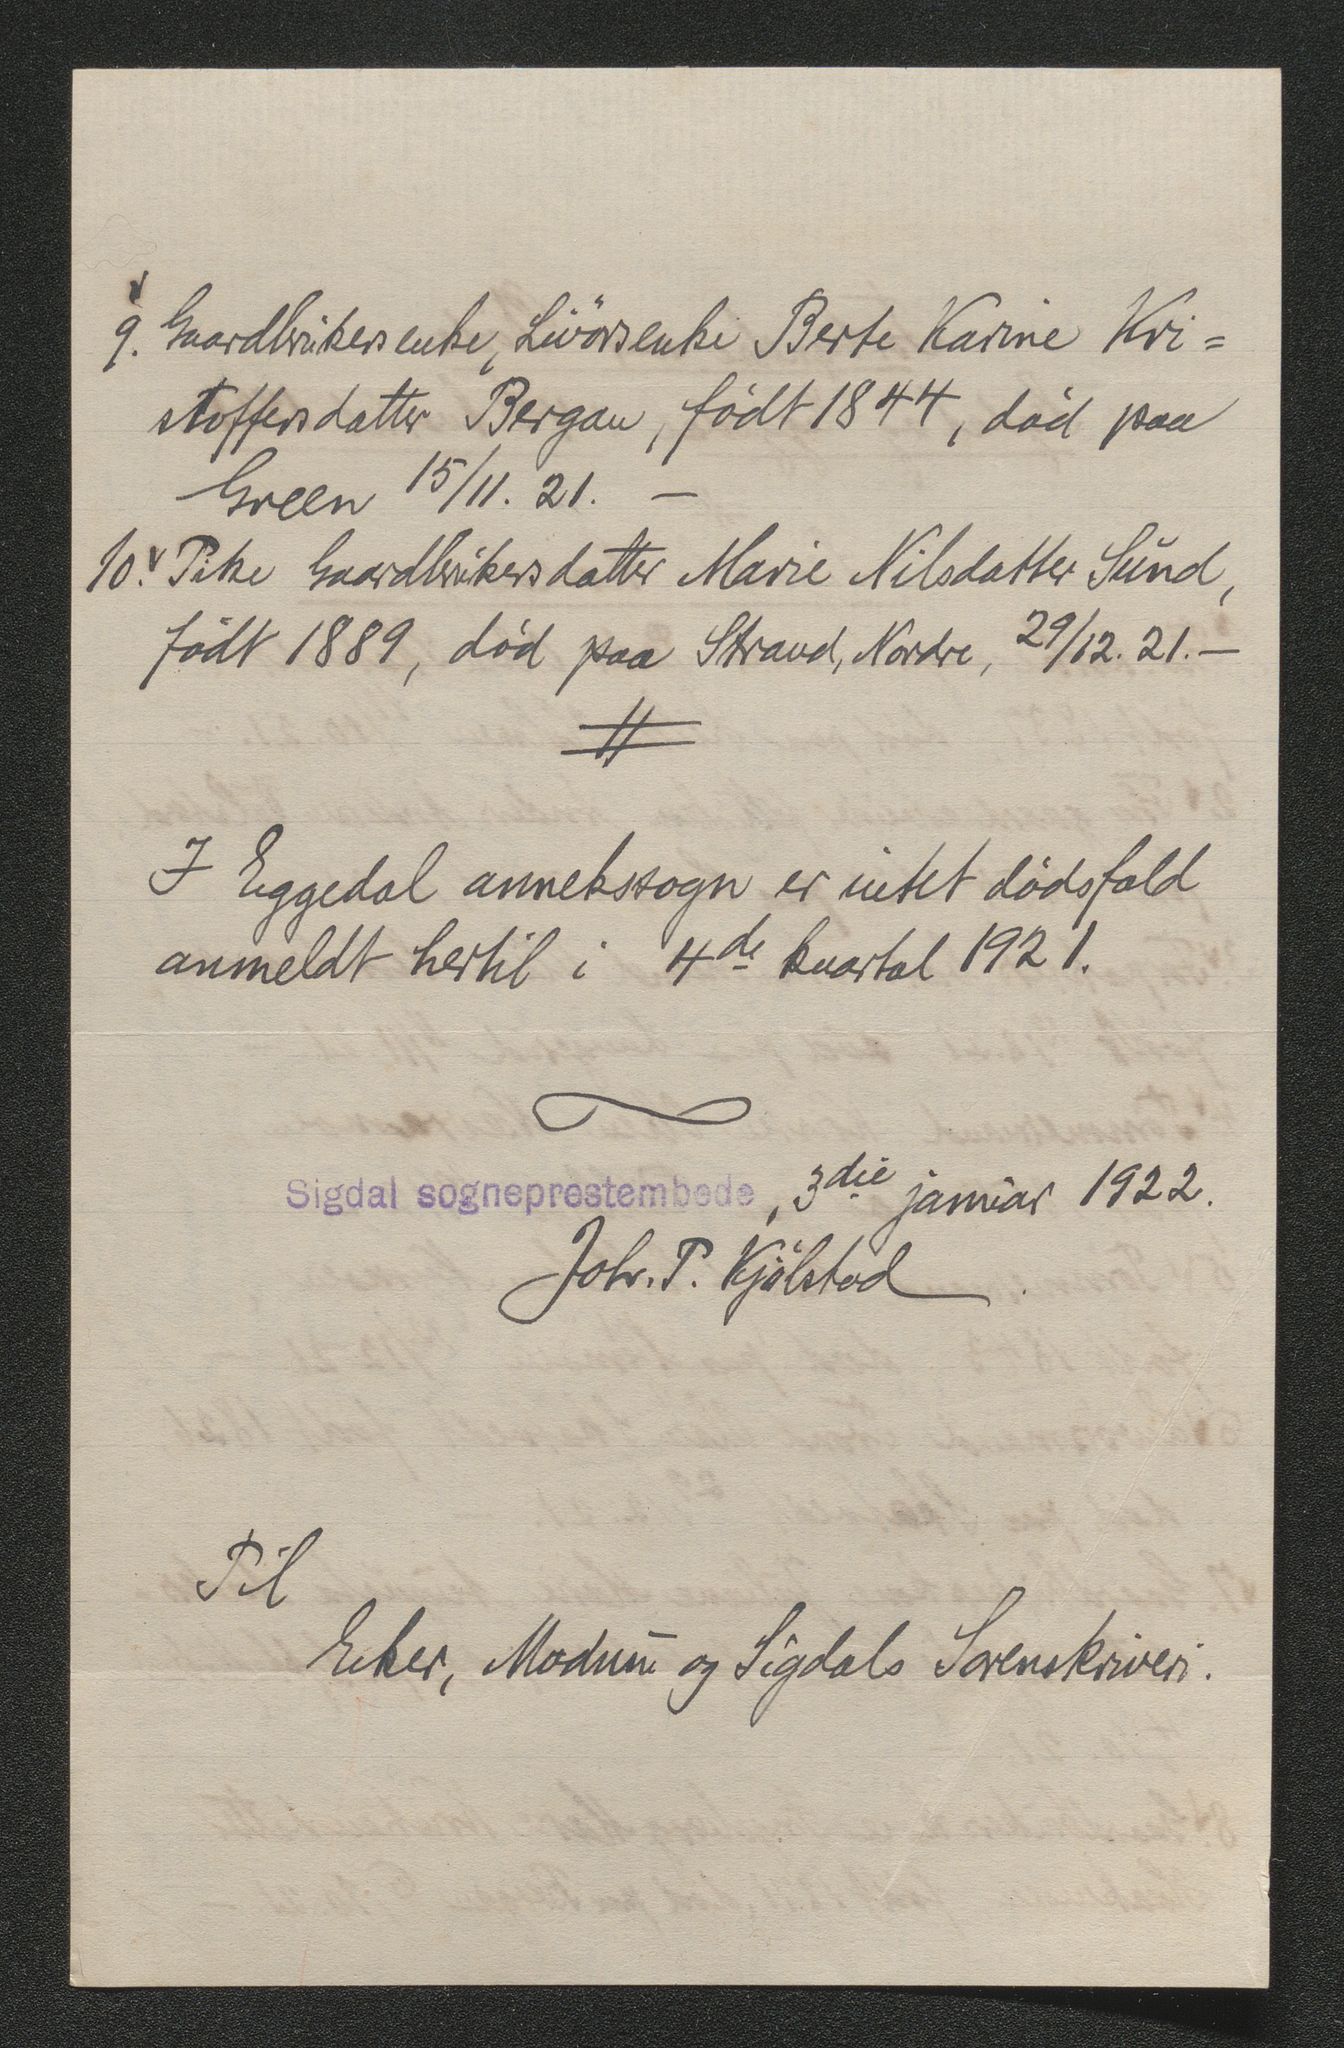 9. Gaardbrukersenke, Livörsenke Berte Karine Kri=
stoffersdatter Bergan, födt 1844, död paa
Green 15/11. 21. —
10. Pike Gaardbrukersdatter Marie Nilsdatter Sund,
födt 1889, död paa Strand, Nordre, 29/12. 21. —
I Eggedal annekssogn er intet dödsfald
anmeldt hertil i 4de kvartal 1921.
Sigdal sogneprestembede, 3die januar 1922.
Joh. P. Kjölstad
Til
Eker, Modum og Sigdals Sorenskriveri.